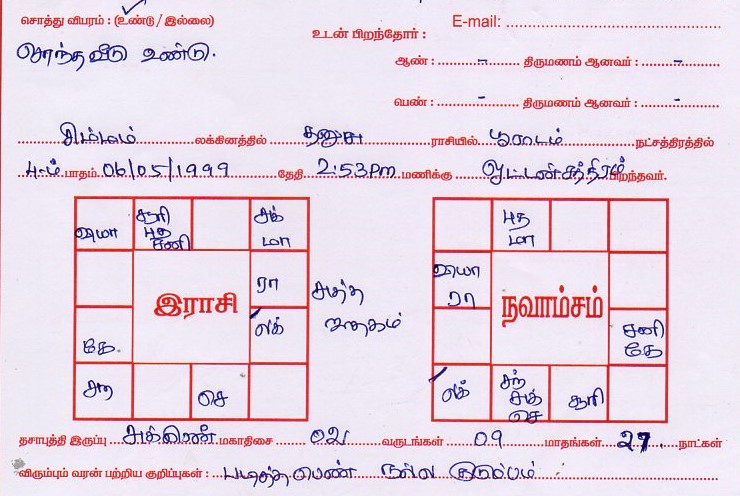 சொத்து விபரம் : (உண்டு / இல்லை)
சொந்த வீடு உண்டு.
E-mail:
உடன் பிறந்தோர் :
ஆண் : - திருமணம் ஆனவர் : -
பெண் : - திருமணம் ஆனவர் : -
சிம்மம் லக்கினத்தில் தனுசு ராசியில் பூராடம் நட்சத்திரத்தில்
4-ம் பாதம் 06/05/1999 தேதி 2:53 Pm மணிக்கு ஒட்டன்சத்திரம் பிறந்தவர்.
வியா சூரி புத சனி சுக் மா
ரா
இராசி
சுத்த ஜாதகம்
கே ல/
சந் செ
புத மா
வியா ரா
நவாம்சம்
சனி கே
ல/ சந் சுக் செ சூரி
தசாபுத்தி இருப்பு சுக்கிரன் மகாதிசை 02 வருடங்கள் 09 மாதங்கள் 27 நாட்கள்
விரும்பும் வரன் பற்றிய குறிப்புகள் : படித்த பெண் நல்ல குடும்பம்